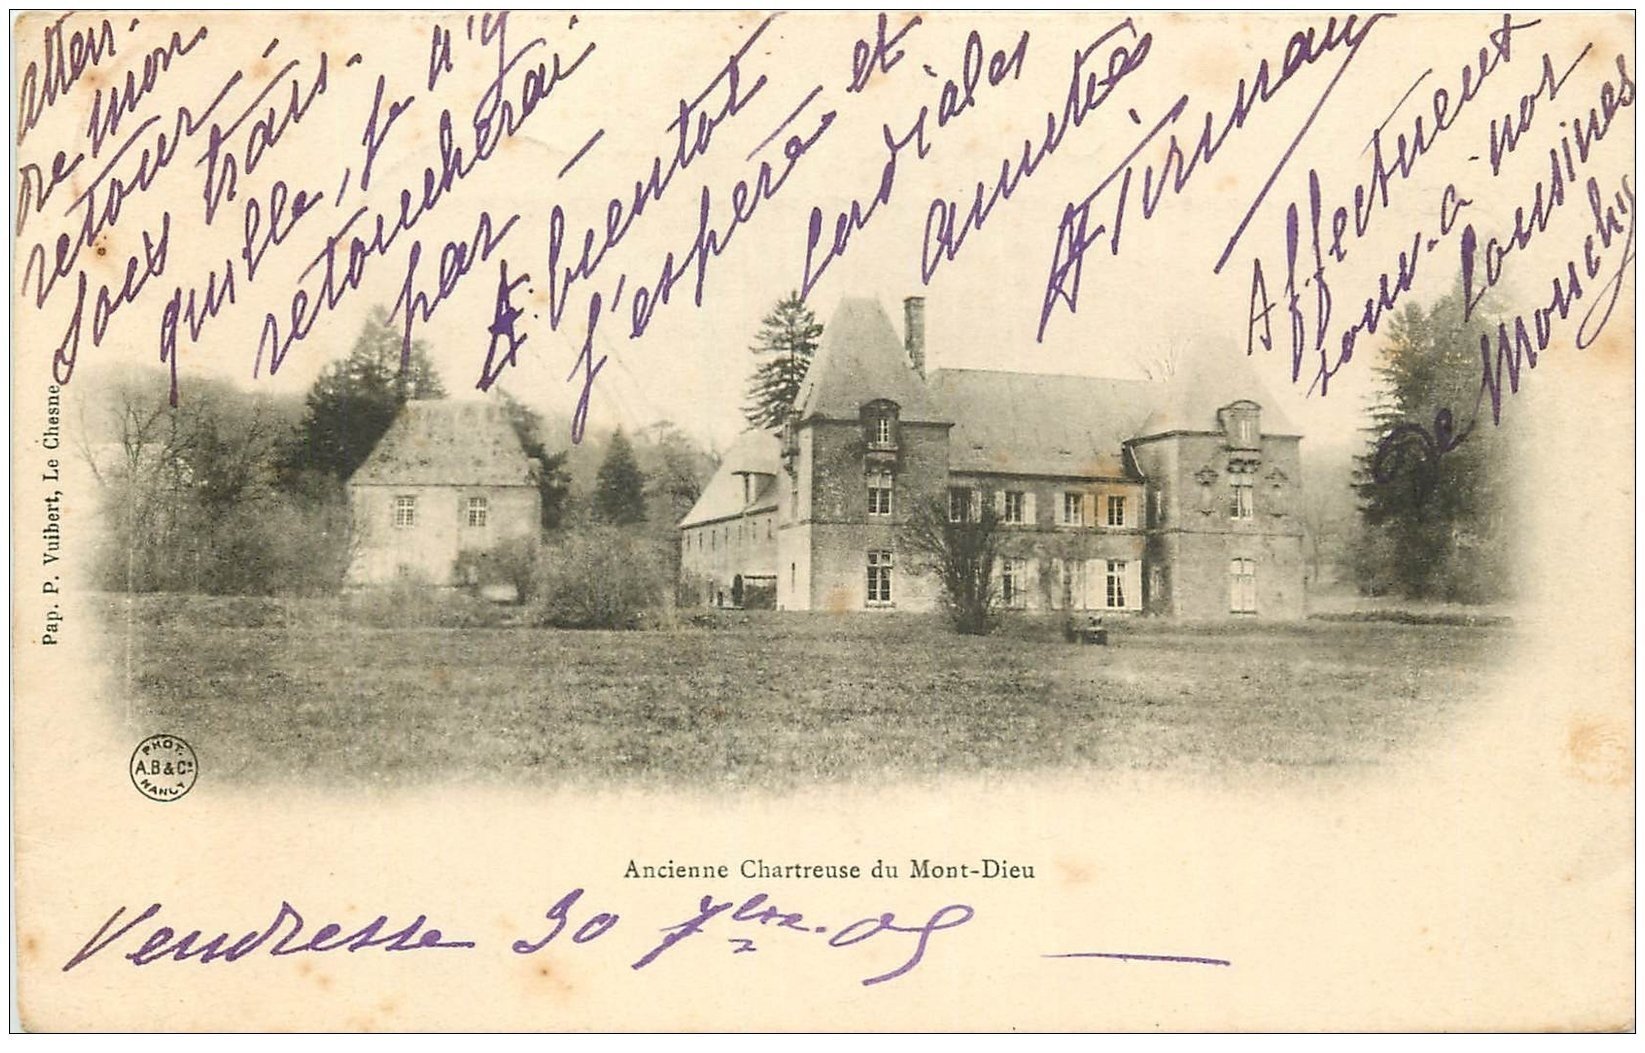 atten-
re mon
retour -
Sois tran-
quille, je n'y
retoucherai
pas -
A bientot
j'espère et
cordiales
amitiés
A Tirman
Affectueux
nos
cousines
de Mouchy
Pap. P. Vuibert, Le Chesne
PHOT.
A.B & Cie
NANCY
Ancienne Chartreuse du Mont-Dieu
Vendresse 30 7bre. 05